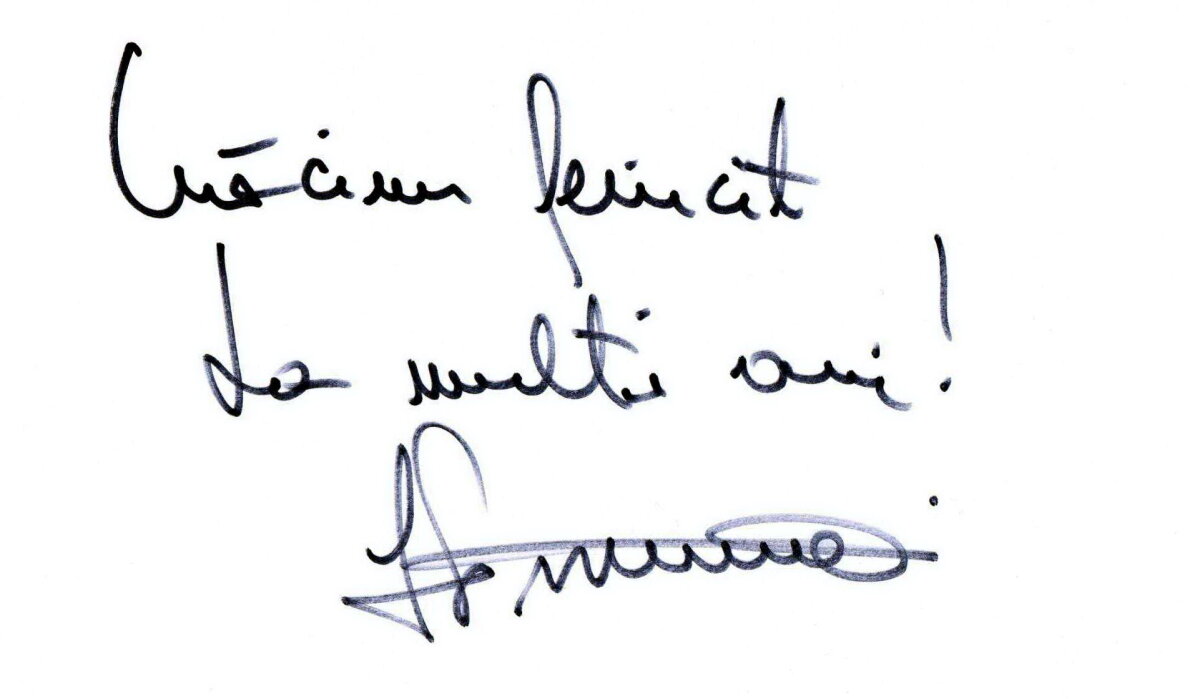 Crăciun fericit
La multi ani!